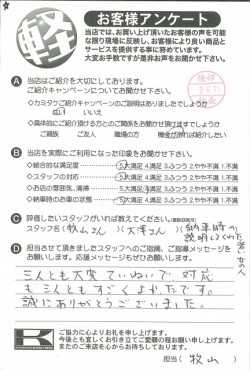 軽
お客様アンケート
当店では、お買い上げ頂いたお客様の声を可能
な限り現場に反映し、お客様により良い商品と
サービスを提供する事に努めています。
大変お手数ですが是非お声をお聞かせ下さい。
A 当店はご紹介を大切にしております。
ご紹介キャンペーンについてお聞かせ下さい。
◇カミタケご紹介キャンペーンのご説明はありましたでしょうか
はい いいえ
◇具体的にご紹介頂ける方とのご関係をお聞かせ頂けますでしょうか
ご親族 ご友人 職場の方 機会があれば紹介したい
B 当店を実際にご利用になった印象をお聞かせ下さい。
◇総合的な満足度 5.大満足 4.満足 3.ふつう 2.やや不満 1.不満
◇スタッフの対応 5.大満足 4.満足 3.ふつう 2.やや不満 1.不満
◇お店の雰囲気、清掃 5.大満足 4.満足 3.ふつう 2.やや不満 1.不満
◇納車時のお車の状態 5.大満足 4.満足 3.ふつう 2.やや不満 1.不満
C 評価したいスタッフがいれば教えてください。
スタッフ名 (牧山さん) (大澤さん) (納車時の説明してくれた若い女の人)
D 担当させて頂きましたスタッフへのご指摘、ご指導メッセージを
お願いします。応援メッセージもぜひお願いします。
三人とも大変ていねいで対応
も三人ともすごくよかったです。
誠にありがとうございました。
ご協力に心よりお礼を申し上げます。
今後とも宜しくお引き立てご愛顧の程お願い申し上げます。
またのご来店を心からお待ちしております。
担当(牧山)